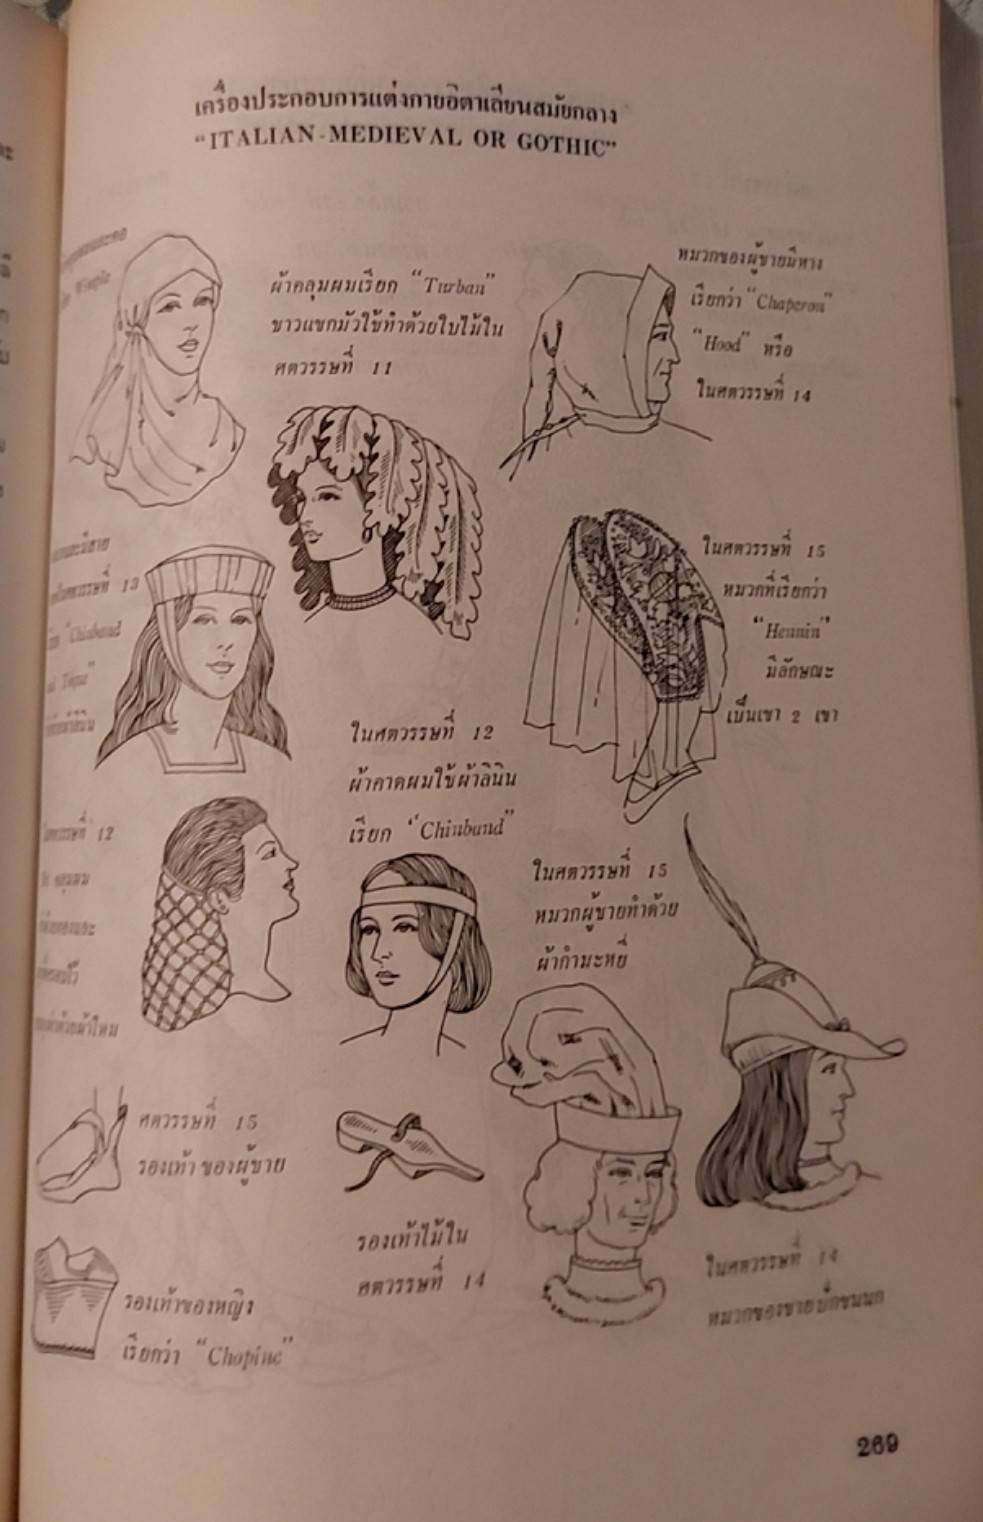 เครื่องประกอบการแต่งกายอิตาเลียนสมัยกลาง
"ITALIAN-MEDIEVAL OR GOTHIC"
Wimple
ผ้าคลุมผมเรียก "Turban"
ชาวแขกมัวใช้ทำด้วยใบไม้ใน
ศตวรรษที่ 11
หมวกของผู้ชายมีหาง
เรียกว่า "Chaperon"
"Hood" หรือ
ในศตวรรษที่ 14
ศตวรรษที่ 13
"Chinband
Toque"
ในศตวรรษที่ 15
หมวกที่เรียกว่า
"Hennin"
มีลักษณะ
เป็นเขา 2 เขา
ในศตวรรษที่ 12
ผ้าคาดผมใช้ผ้าลินิน
เรียก "Chinband"
ศตวรรษที่ 12
ในศตวรรษที่ 15
หมวกผู้ชายทำด้วย
ผ้ากำมะหยี่
ศตวรรษที่ 15
รองเท้า ของผู้ชาย
รองเท้าไม้ใน
ศตวรรษที่ 14
ในศตวรรษที่ 14
หมวกของชายปักขนนก
รองเท้าของหญิง
เรียกว่า "Chopine"
269